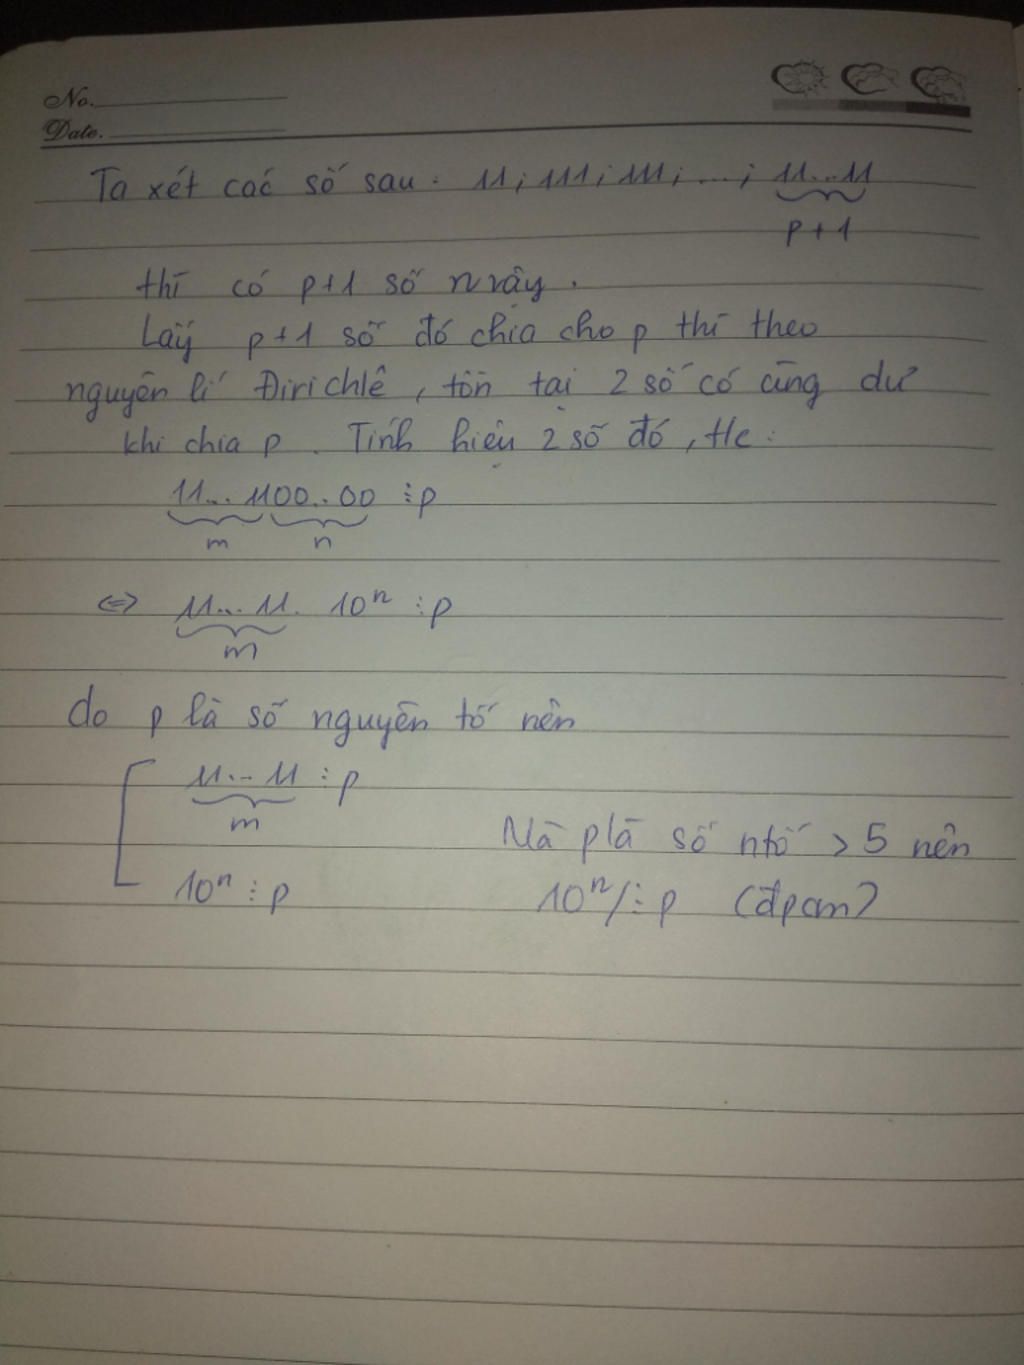 No.
Date.
Ta xét các số sau: 11; 111; 1111; ...; 11...11
p+1
thì có p+1 số như vậy.
Lấy p+1 số đó chia cho p thì theo
nguyên lí Đirichlê, tồn tại 2 số có cùng dư
khi chia p. Tính hiệu 2 số đó, tlc:
11...1100..00 ⋮ p
m n
<=> 11...11. 10ⁿ ⋮ p
m
do p là số nguyên tố nên
11...11 ⋮ p
m
Mà p là số ntố > 5 nên
10ⁿ ⋮ p 10ⁿ /⋮ p (đpcm)